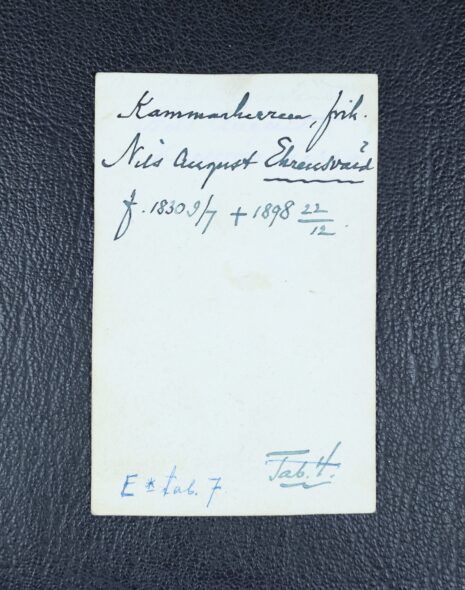 Kammarherren, frih.
Nils August Ehrensvärd
f. 1830 9/7 + 1898 22/12.
Tab. H.
E * tab. 7